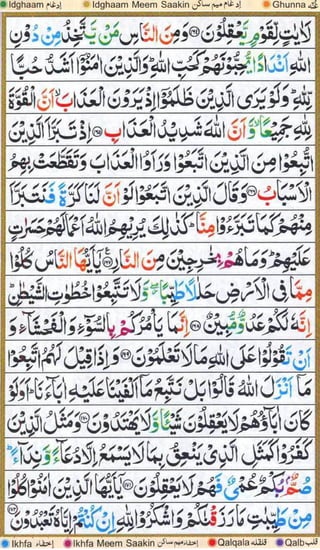 Idghaam ادغام Idghaam Meem Saakin ادغام میم ساکن Ghunna غنہ
لَاٰيٰتٍ لِّقَوْمٍ يَّعْقِلُوْنَ ﴿۱۶۴﴾ وَمِنَ النَّاسِ مَنْ يَّتَّخِذُ مِنْ دُوْنِ
اللّٰهِ اَنْدَادًا يُّحِبُّوْنَهُمْ كَحُبِّ اللّٰهِ ؕ وَالَّذِيْنَ اٰمَنُوْٓا اَشَدُّ حُبًّا
لِّلّٰهِ ؕ وَلَوْ يَرَى الَّذِيْنَ ظَلَمُوْٓا اِذْ يَرَوْنَ الْعَذَابَ ۙ اَنَّ الْقُوَّةَ
لِلّٰهِ جَمِيْعًا ۙ وَّاَنَّ اللّٰهَ شَدِيْدُ الْعَذَابِ ﴿۱۶۵﴾ اِذْ تَبَرَّاَ الَّذِيْنَ
اتُّبِعُوْا مِنَ الَّذِيْنَ اتَّبَعُوْا وَرَاَوُا الْعَذَابَ وَتَقَطَّعَتْ بِهِمُ
الْاَسْبَابُ ﴿۱۶۶﴾ وَقَالَ الَّذِيْنَ اتَّبَعُوْا لَوْ اَنَّ لَنَا كَرَّةً فَنَتَبَرَّاَ
مِنْهُمْ كَمَا تَبَرَّءُوْا مِنَّا ؕ كَذٰلِكَ يُرِيْهِمُ اللّٰهُ اَعْمَالَهُمْ حَسَرٰتٍ
عَلَيْهِمْ ؕ وَمَا هُمْ بِخٰرِجِيْنَ مِنَ النَّارِ ﴿۱۶۷﴾ يٰٓاَيُّهَا النَّاسُ كُلُوْا
مِمَّا فِى الْاَرْضِ حَلٰلًا طَيِّبًا ۖ وَّلَا تَتَّبِعُوْا خُطُوٰتِ الشَّيْطٰنِ ؕ
اِنَّهٗ لَكُمْ عَدُوٌّ مُّبِيْنٌ ﴿۱۶۸﴾ اِنَّمَا يَاْمُرُكُمْ بِالسُّوْٓءِ وَالْفَحْشَآءِ وَ
اَنْ تَقُوْلُوْا عَلَى اللّٰهِ مَا لَا تَعْلَمُوْنَ ﴿۱۶۹﴾ وَاِذَا قِيْلَ لَهُمُ اتَّبِعُوْا
مَآ اَنْزَلَ اللّٰهُ قَالُوْا بَلْ نَتَّبِعُ مَآ اَلْفَيْنَا عَلَيْهِ اٰبَآءَنَا ؕ اَوَلَوْ
كَانَ اٰبَآؤُهُمْ لَا يَعْقِلُوْنَ شَيْئًا وَّلَا يَهْتَدُوْنَ ﴿۱۷۰﴾ وَمَثَلُ الَّذِيْنَ
كَفَرُوْا كَمَثَلِ الَّذِيْ يَنْعِقُ بِمَا لَا يَسْمَعُ اِلَّا دُعَآءً وَّنِدَآءً ؕ
صُمٌّۢ بُكْمٌ عُمْيٌ فَهُمْ لَا يَعْقِلُوْنَ ﴿۱۷۱﴾ يٰٓاَيُّهَا الَّذِيْنَ اٰمَنُوْا كُلُوْا
مِنْ طَيِّبٰتِ مَا رَزَقْنٰكُمْ وَاشْكُرُوْا لِلّٰهِ اِنْ كُنْتُمْ اِيَّاهُ تَعْبُدُوْنَ ﴿۱۷۲﴾
Ikhfa اخفاء Ikhfa Meem Saakin اخفاء میم ساکن Qalqala قلقلہ Qalb قلب